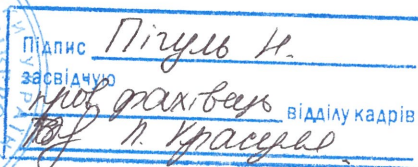 Підпис Пігуль Н.
засвідчую
пров фахівець відділу кадрів
Л. Красуля